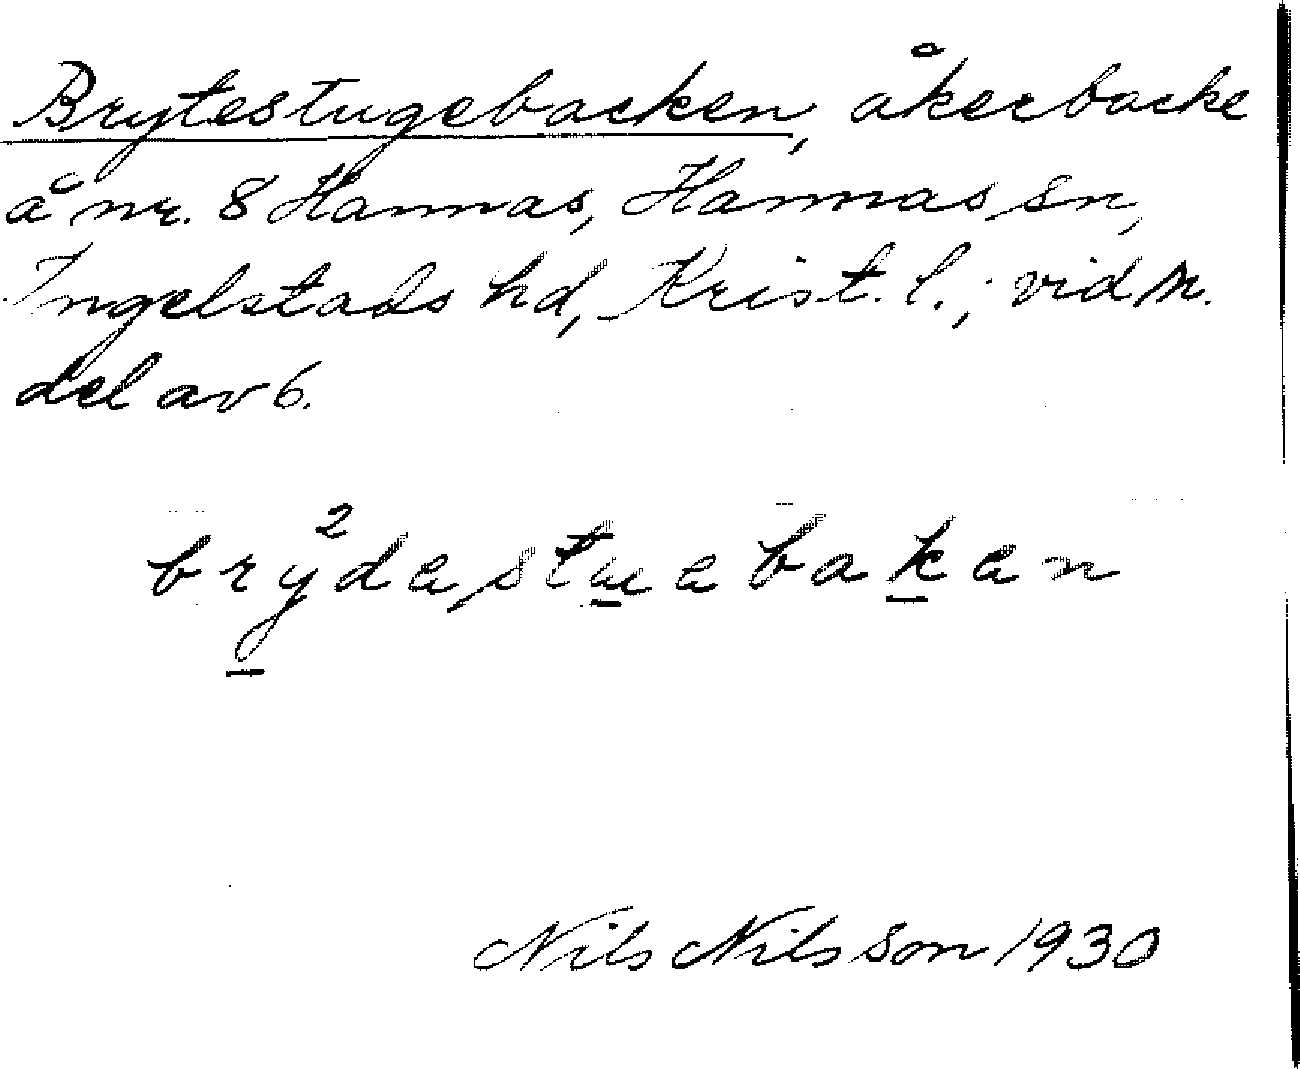 Brytestugebacken, åkerbacke
å nr. 8 Hannas, Hannas sn,
Ingelstads hd, Krist. l.; vid m.
del av 6.
brȳ²dαstu̱αbaḵαn
Nils Nilsson 1930